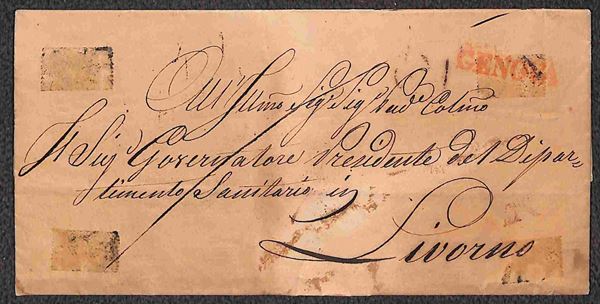 GENOVA
All Illmo Sigr Sigr Padre Colmo
Il Sigr Governatore Presidente del Dipar=
timento Sanitario in
Livorno